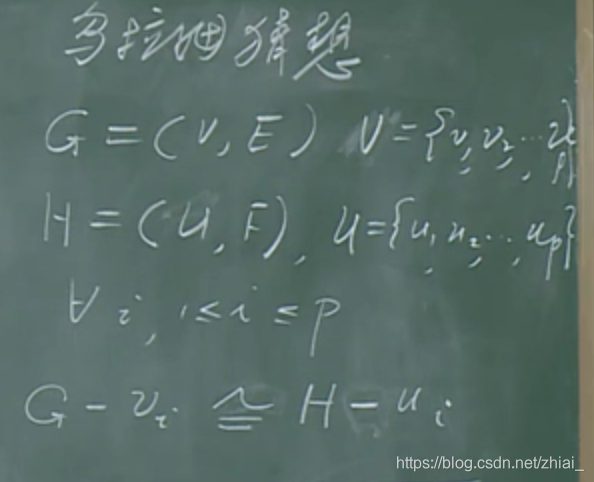 乌拉姆猜想
G = (V, E) V = {v₁, v₂, ... vₚ}
H = (U, F), U = {u₁, u₂, ..., uₚ}
∀ i, 1 ≤ i ≤ p
G - vᵢ ≅ H - uᵢ
https://blog.csdn.net/zhiai_